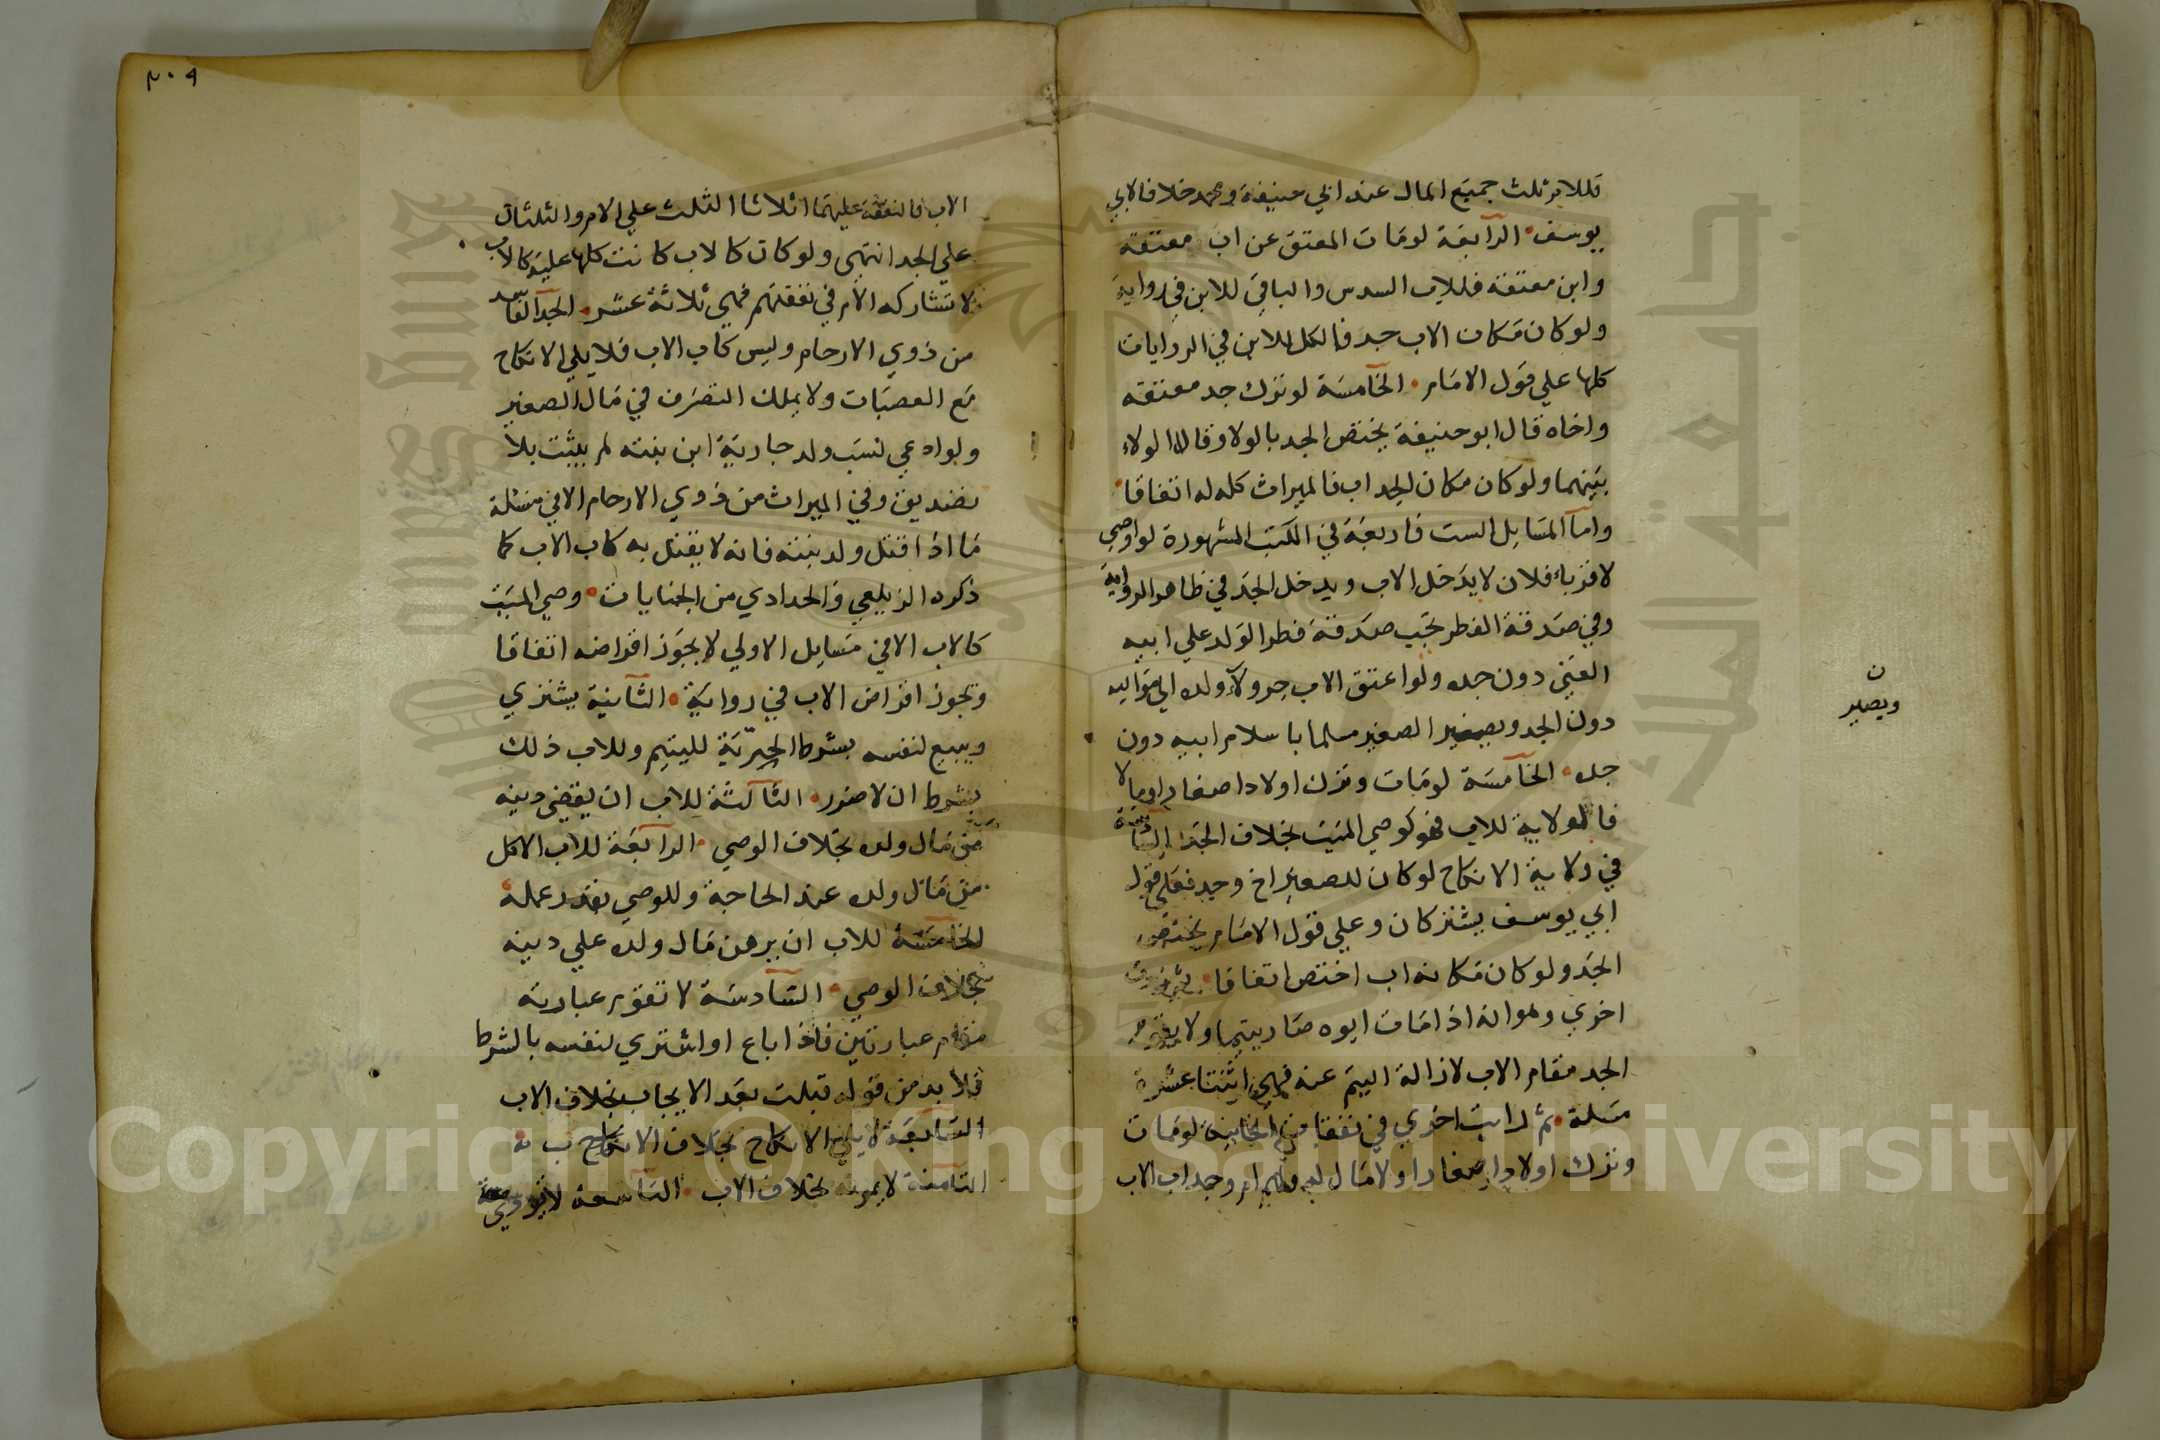 فللام ثلث جميع المال عند ابي حنيفة ومحمد خلافا لابي
يوسف الرابعة لو مات المعتق عن اب معتقة
وابن معتقة فللاب السدس والباقي للابن في رواية
ولو كان مكان الاب جد فالكل للابن في الروايات
كلها علي قول الامام الخامسة لو ترك جد معتقه
واخاه قال ابو حنيفة يختص الجد بالولا وقالا الولاء
بينهما ولو كان مكان الجد اب فالميراث كله له اتفاقا
واما المسايل الست فاربعة في الكتب المشهورة لو اوصي
لاقرباء فلان لا يدخل الاب ويدخل الجد في ظاهر الرواية
وفي صدقة الفطر تجب صدقة فطر الولد علي ابيه
الغني دون جده ولو اعتق الاب جر ولاء ولده الي مواليه
دون الجد ويصير الصغير مسلما باسلام ابيه دون
جده الخامسة لو مات وترك اولادا صغارا ومالا
فالولاية للاب فهو كوصي الميت بخلاف الجد السادسة
في ولاية الانكاح لو كان للصغير اخ وجد فعلي قول
ابي يوسف يشتركان وعلي قول الامام يختص
الجد ولو كان مكانه اب اختص اتفاقا ثم زدت
اخري وهوانه اذا مات ابوه صار يتيما ولا يقوم
الجد مقام الاب لازالة اليتم عنه فهي اثنتا عشرة
مسلة ثم رايت اخري في نفقات الخانية لو مات
وترك اولادا صغارا ولا مال له ولهم ام وجد اب الاب
ن
ويصير
٢٠٩
الاب فالنفقة عليهما اثلاثا الثلث علي الام والثلثان
علي الجد انتهي ولو كان كالاب كانت كلها عليه كالاب
لا تشاركه الام في نفقتهم فهي ثلاثة عشر الجد الفاسد
من ذوي الارحام وليس كاب الاب فلا يلي الانكاح
مع العصبات ولا يملك التصرف في مال الصغير
ولو ادعي نسب ولد جارية ابن بنته لم يثبت بلا
تصديق وفي الميراث من ذوي الارحام الا في مسئلة
ما اذا قتل ولد بنته فانه لا يقتل به كاب الاب كما
ذكره الزيلعي والحدادي من الجنايات وصي الميت
كالاب الا في مسايل الاولي لا يجوز اقراضه اتفاقا
وتجوز اقراض الاب في رواية الثانية يشتري
ويبيع لنفسه بشرط الخيرية لليتيم وللاب ذلك
بشرط ان لا ضرر الثالثة للاب ان يقضي دينه
من مال ولده بخلاف الوصي الرابعة للاب الاكل
من مال ولده عند الحاجة وللوصي بقدر عمله
الخامسة للاب ان يرهن مال ولده علي دينه
بخلاف الوصي السادسة لا تقوم عبارته
مقام عبارتين فاذا باع او اشتري لنفسه بالشرط
فلا بد من قوله قبلت بعد الايجاب بخلاف الاب
السابعة لا يلي الانكاح بخلاف
الثامنة لا يمونه بخلاف الاب التاسعة لا يؤدي
Copyright © King Saud University
جامعة الملك سعود
King Saud University
1957